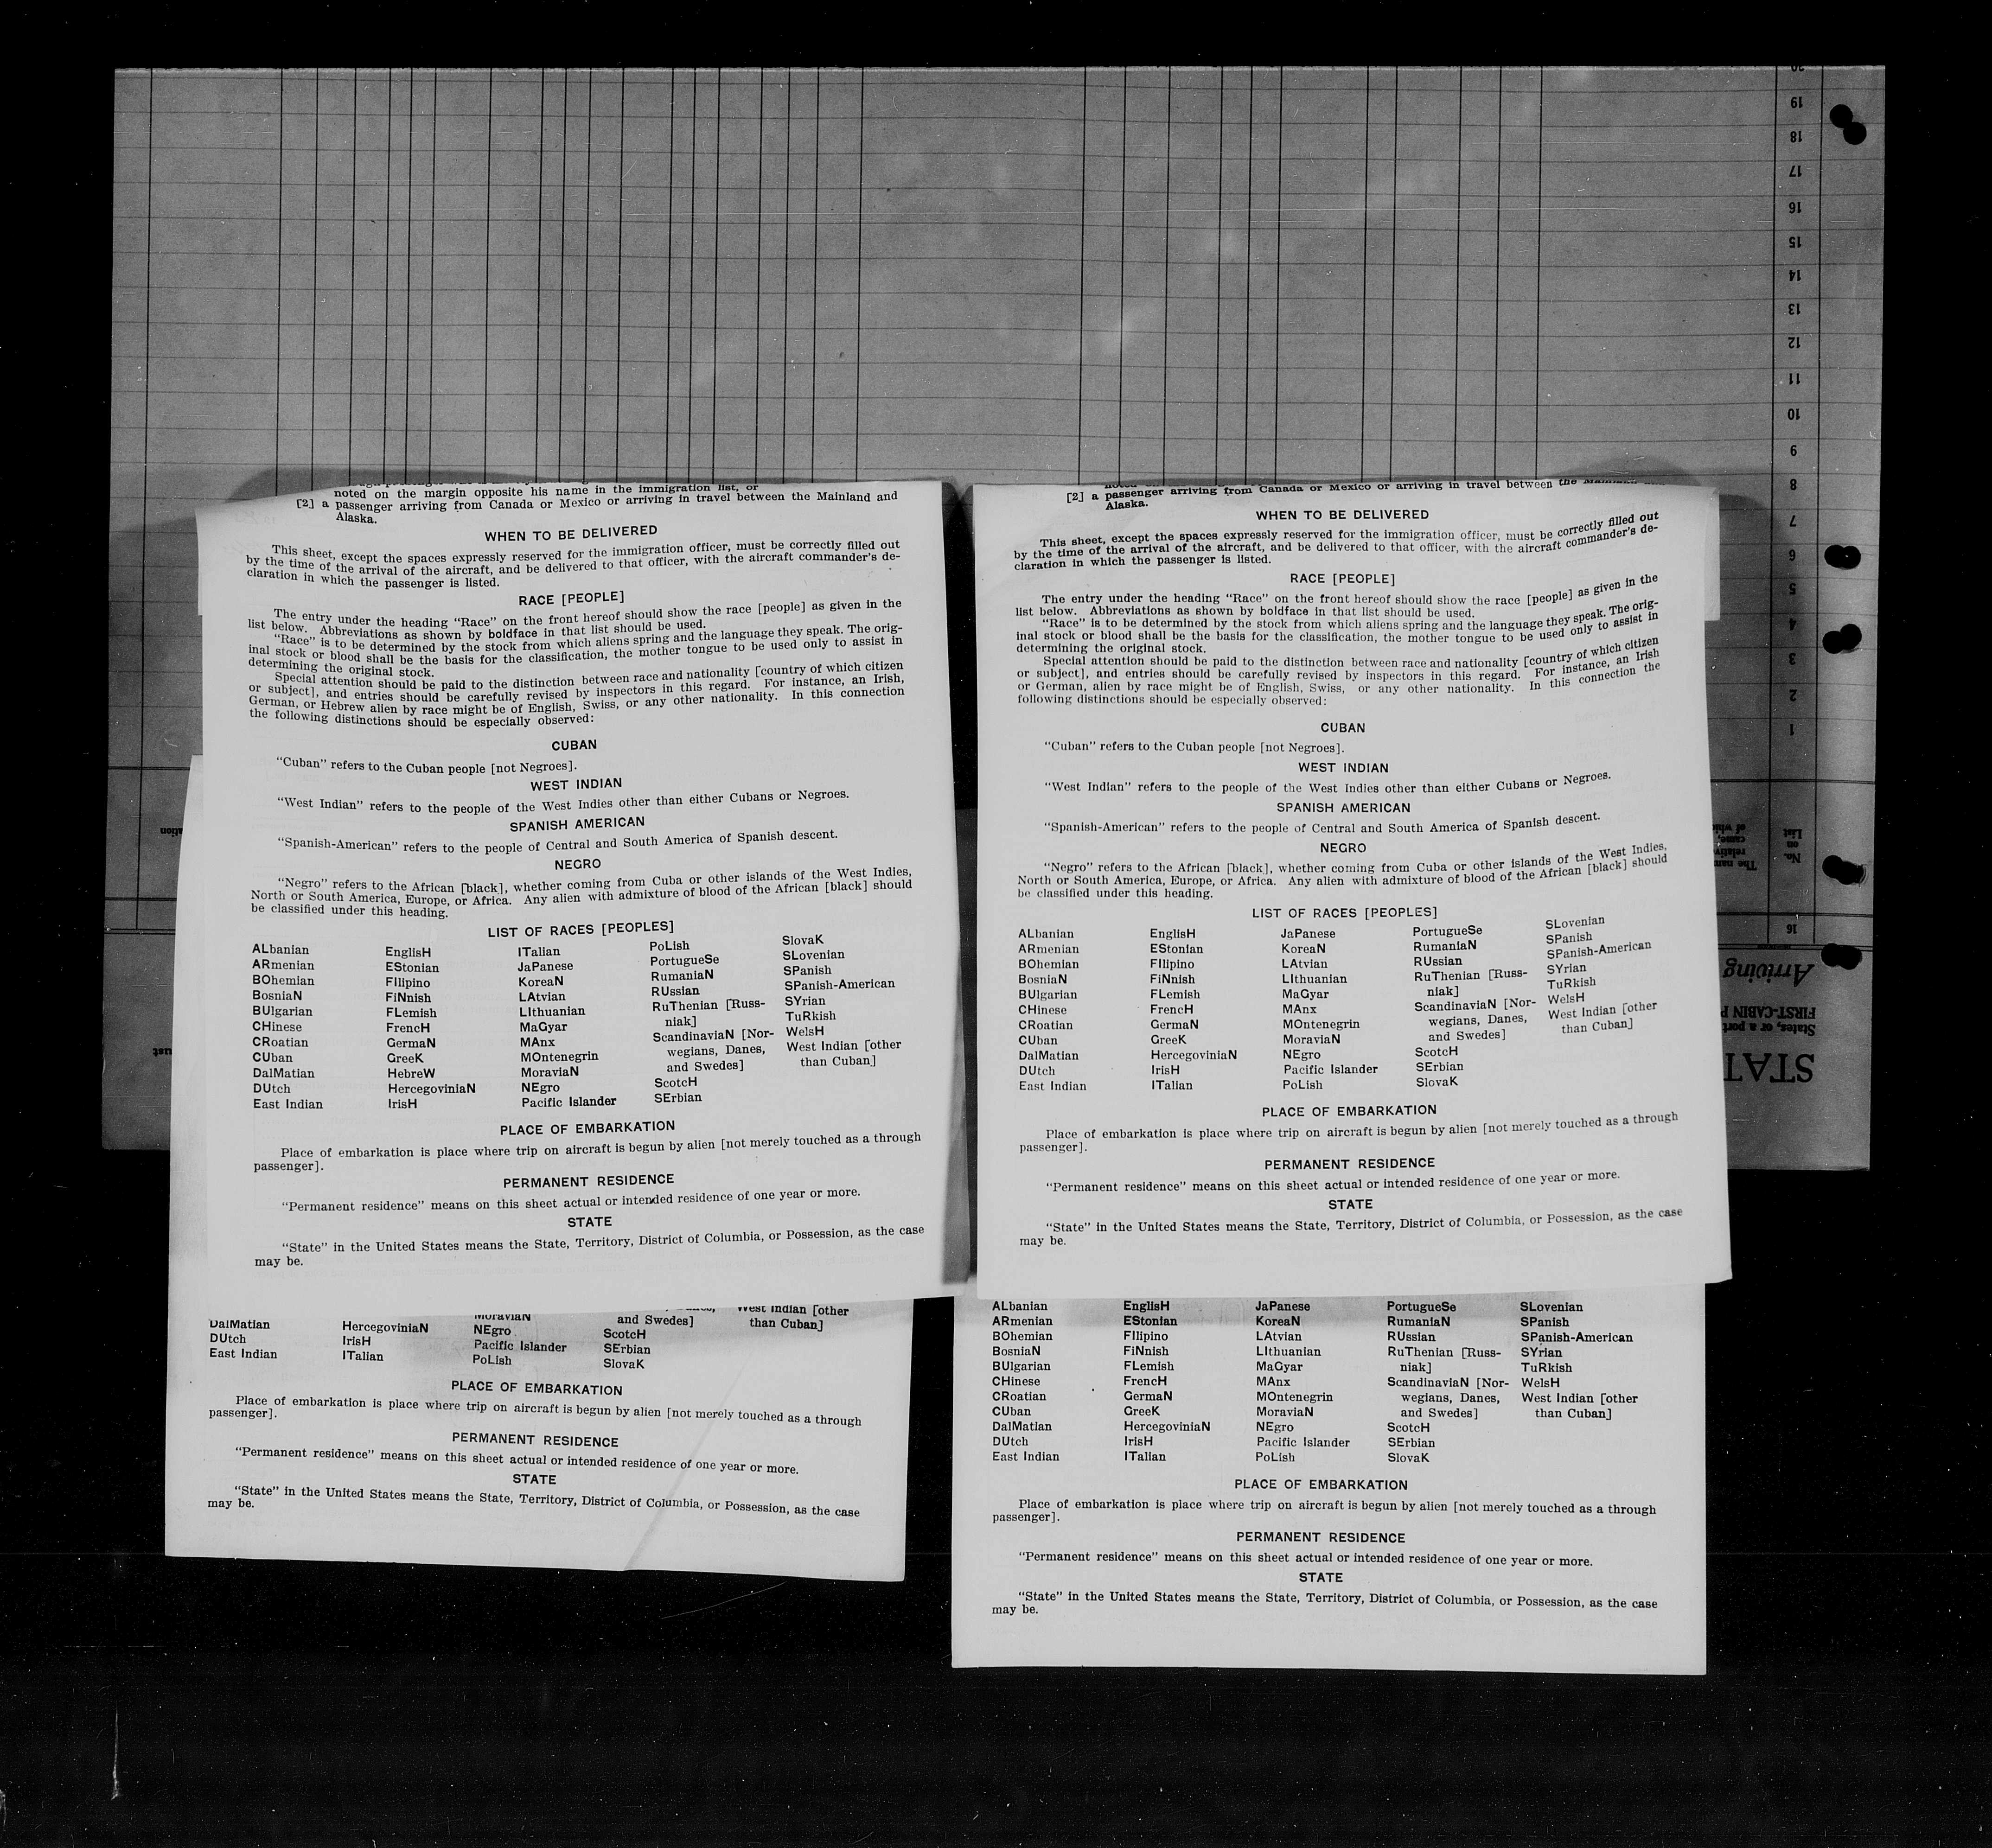 noted on the margin opposite his name in the immigration list, or
[2] a passenger arriving from Canada or Mexico or arriving in travel between the Mainland and
Alaska.
WHEN TO BE DELIVERED
This sheet, except the spaces expressly reserved for the immigration officer, must be correctly filled out
by the time of the arrival of the aircraft, and be delivered to that officer, with the aircraft commander's de-
claration in which the passenger is listed.
RACE [PEOPLE]
The entry under the heading "Race" on the front hereof should show the race [people] as given in the
list below. Abbreviations as shown by boldface in that list should be used.
"Race" is to be determined by the stock from which aliens spring and the language they speak. The orig-
inal stock or blood shall be the basis for the classification, the mother tongue to be used only to assist in
determining the original stock.
Special attention should be paid to the distinction between race and nationality [country of which citizen
or subject], and entries should be carefully revised by inspectors in this regard. For instance, an Irish,
German, or Hebrew alien by race might be of English, Swiss, or any other nationality. In this connection
the following distinctions should be especially observed:
CUBAN
"Cuban" refers to the Cuban people [not Negroes].
WEST INDIAN
"West Indian" refers to the people of the West Indies other than either Cubans or Negroes.
SPANISH AMERICAN
"Spanish-American" refers to the people of Central and South America of Spanish descent.
NEGRO
"Negro" refers to the African [black], whether coming from Cuba or other islands of the West Indies,
North or South America, Europe, or Africa. Any alien with admixture of blood of the African [black] should
be classified under this heading.
LIST OF RACES [PEOPLES]
ALbanian
ARmenian
BOhemian
BosniaN
BUlgarian
CHinese
CRoatian
CUban
DalMatian
DUtch
East Indian
EnglisH
EStonian
FIlipino
FiNnish
FLemish
FrencH
GermaN
GreeK
HebreW
HercegoviniaN
IrisH
ITalian
JaPanese
KoreaN
LAtvian
LIthuanian
MaGyar
MAnx
MOntenegrin
MoraviaN
NEgro
Pacific Islander
PoLish
PortugueSe
RumaniaN
RUssian
RuThenian [Russ-
niak]
ScandinaviaN [Nor-
wegians, Danes,
and Swedes]
ScotcH
SErbian
SlovaK
SLovenian
SPanish
SPanish-American
SYrian
TuRkish
WelsH
West Indian [other
than Cuban]
PLACE OF EMBARKATION
Place of embarkation is place where trip on aircraft is begun by alien [not merely touched as a through
passenger].
PERMANENT RESIDENCE
"Permanent residence" means on this sheet actual or intended residence of one year or more.
STATE
"State" in the United States means the State, Territory, District of Columbia, or Possession, as the case
may be.
[2] a passenger arriving from Canada or Mexico or arriving in travel between the
Alaska.
WHEN TO BE DELIVERED
This sheet, except the spaces expressly reserved for the immigration officer, must be correctly filled out
by the time of the arrival of the aircraft, and be delivered to that officer, with the aircraft commander's de-
claration in which the passenger is listed.
RACE [PEOPLE]
The entry under the heading "Race" on the front hereof should show the race [people] as given in the
list below. Abbreviations as shown by boldface in that list should be used.
"Race" is to be determined by the stock from which aliens spring and the language they speak. The orig-
inal stock or blood shall be the basis for the classification, the mother tongue to be used only to assist in
determining the original stock.
Special attention should be paid to the distinction between race and nationality [country of which citizen
or subject], and entries should be carefully revised by inspectors in this regard. For instance, an Irish
or German, alien by race might be of English, Swiss, or any other nationality. In this connection the
following distinctions should be especially observed:
CUBAN
"Cuban" refers to the Cuban people [not Negroes].
WEST INDIAN
"West Indian" refers to the people of the West Indies other than either Cubans or Negroes.
SPANISH AMERICAN
"Spanish-American" refers to the people of Central and South America of Spanish descent.
NEGRO
"Negro" refers to the African [black], whether coming from Cuba or other islands of the West Indies,
North or South America, Europe, or Africa. Any alien with admixture of blood of the African [black] should
be classified under this heading.
LIST OF RACES [PEOPLES]
ALbanian
ARmenian
BOhemian
BosniaN
BUlgarian
CHinese
CRoatian
CUban
DalMatian
DUtch
East Indian
EnglisH
EStonian
FIlipino
FiNnish
FLemish
FrencH
GermaN
GreeK
HercegoviniaN
IrisH
ITalian
JaPanese
KoreaN
LAtvian
LIthuanian
MaGyar
MAnx
MOntenegrin
MoraviaN
NEgro
Pacific Islander
PoLish
PortugueSe
RumaniaN
RUssian
RuThenian [Russ-
niak]
ScandinaviaN [Nor-
wegians, Danes,
and Swedes]
ScotcH
SErbian
SlovaK
SLovenian
SPanish
SPanish-American
SYrian
TuRkish
WelsH
West Indian [other
than Cuban]
PLACE OF EMBARKATION
Place of embarkation is place where trip on aircraft is begun by alien [not merely touched as a through
passenger].
PERMANENT RESIDENCE
"Permanent residence" means on this sheet actual or intended residence of one year or more.
STATE
"State" in the United States means the State, Territory, District of Columbia, or Possession, as the case
may be.
DalMatian
DUtch
East Indian
HercegoviniaN
IrisH
ITalian
MoraviaN
NEgro
Pacific Islander
PoLish
and Swedes]
ScotcH
SErbian
SlovaK
West Indian [other
than Cuban]
PLACE OF EMBARKATION
Place of embarkation is place where trip on aircraft is begun by alien [not merely touched as a through
passenger].
PERMANENT RESIDENCE
"Permanent residence" means on this sheet actual or intended residence of one year or more.
STATE
"State" in the United States means the State, Territory, District of Columbia, or Possession, as the case
may be.
ALbanian
ARmenian
BOhemian
BosniaN
BUlgarian
CHinese
CRoatian
CUban
DalMatian
DUtch
East Indian
EnglisH
EStonian
FIlipino
FiNnish
FLemish
FrencH
GermaN
GreeK
HercegoviniaN
IrisH
ITalian
JaPanese
KoreaN
LAtvian
LIthuanian
MaGyar
MAnx
MOntenegrin
MoraviaN
NEgro
Pacific Islander
PoLish
PortugueSe
RumaniaN
RUssian
RuThenian [Russ-
niak]
ScandinaviaN [Nor-
wegians, Danes,
and Swedes]
ScotcH
SErbian
SlovaK
SLovenian
SPanish
SPanish-American
SYrian
TuRkish
WelsH
West Indian [other
than Cuban]
PLACE OF EMBARKATION
Place of embarkation is place where trip on aircraft is begun by alien [not merely touched as a through
passenger].
PERMANENT RESIDENCE
"Permanent residence" means on this sheet actual or intended residence of one year or more.
STATE
"State" in the United States means the State, Territory, District of Columbia, or Possession, as the case
may be.
STAT
States, or a port
FIRST-CABIN P
Arriving
16
No.
on
List
The nam
relative
came,
of whi
1
2
3
4
5
6
7
8
9
10
11
12
13
14
15
16
17
18
19
20